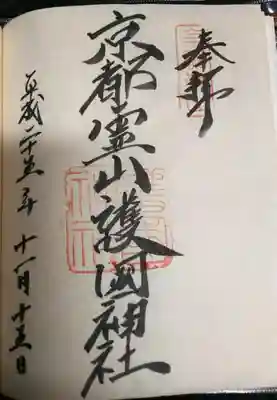 奉拝
京都霊山護國神社
平成二十五年十一月十五日